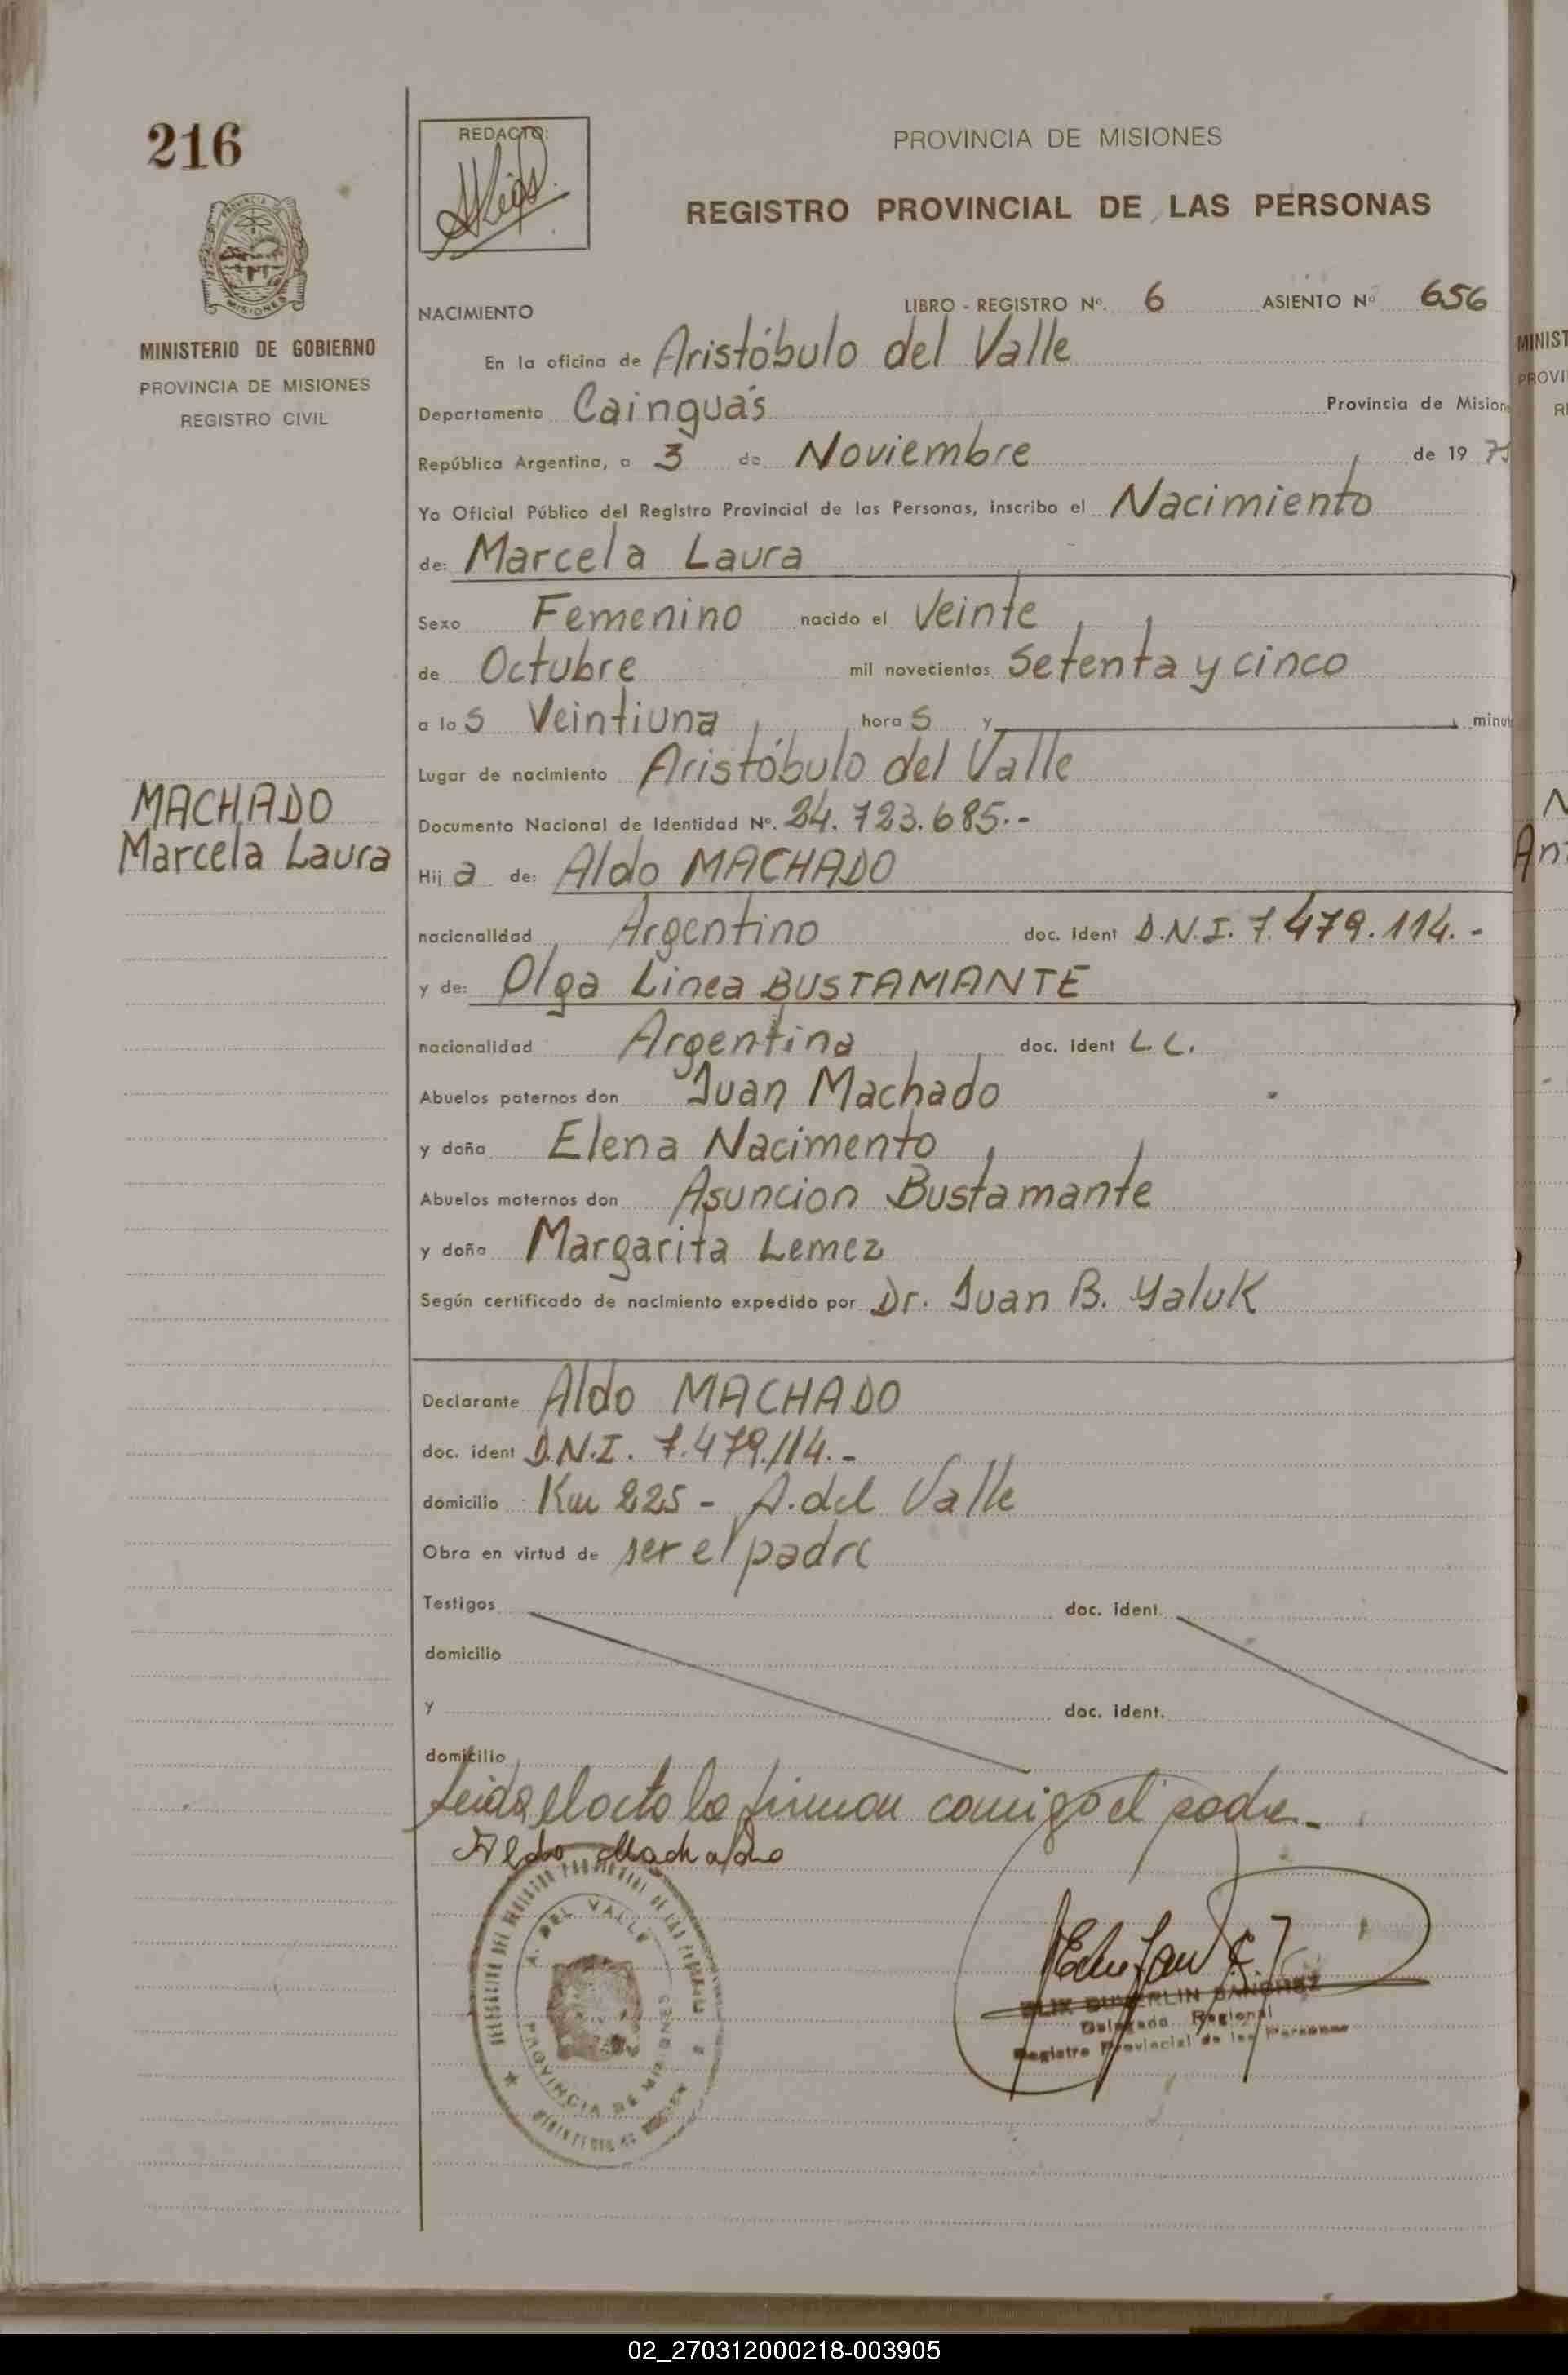 216
REDACTO:
PROVINCIA DE MISIONES
REGISTRO PROVINCIAL DE LAS PERSONAS
MISIONES
MINISTERIO DE GOBIERNO
PROVINCIA DE MISIONES
REGISTRO CIVIL
NACIMIENTO LIBRO - REGISTRO Nº. 6 ASIENTO Nº 656
En la oficina de Aristóbulo del Valle
Departamento Cainguás Provincia de Mision
República Argentina, a 3 de Noviembre de 19 75
Yo Oficial Público del Registro Provincial de las Personas, inscribo el Nacimiento
de: Marcela Laura
Sexo Femenino nacido el Veinte
de Octubre mil novecientos Setenta y cinco
a las Veintiuna horas y minut
Lugar de nacimiento Aristóbulo del Valle
MACHADO
Marcela Laura
Documento Nacional de Identidad Nº. 24.723.685.-
Hija de: Aldo MACHADO
nacionalidad Argentino doc. ident D.N.I. 7.479.114.-
y de: Olga Linea BUSTAMANTE
nacionalidad Argentina doc. ident L C.
Abuelos paternos don Juan Machado
y doña Elena Nacimento
Abuelos maternos don Asuncion Bustamante
y doña Margarita Lemez
Según certificado de nacimiento expedido por Dr. Juan B. Yaluk
Declarante Aldo MACHADO
doc. ident D.N.I. 7.479.114.-
domicilio Km 225 - A. del Valle
Obra en virtud de ser el padre
Testigos doc. ident.
domicilio
y doc. ident.
domicilio
Leida el acta la firman comigo el padre.-
Aldo Machado
A. DEL VALLE
PROVINCIA DE MISIONES
SANCHEZ
Delegado Regional
Registro Provincial de las Personas
MINIST
PROVI
R
An
02_270312000218-003905